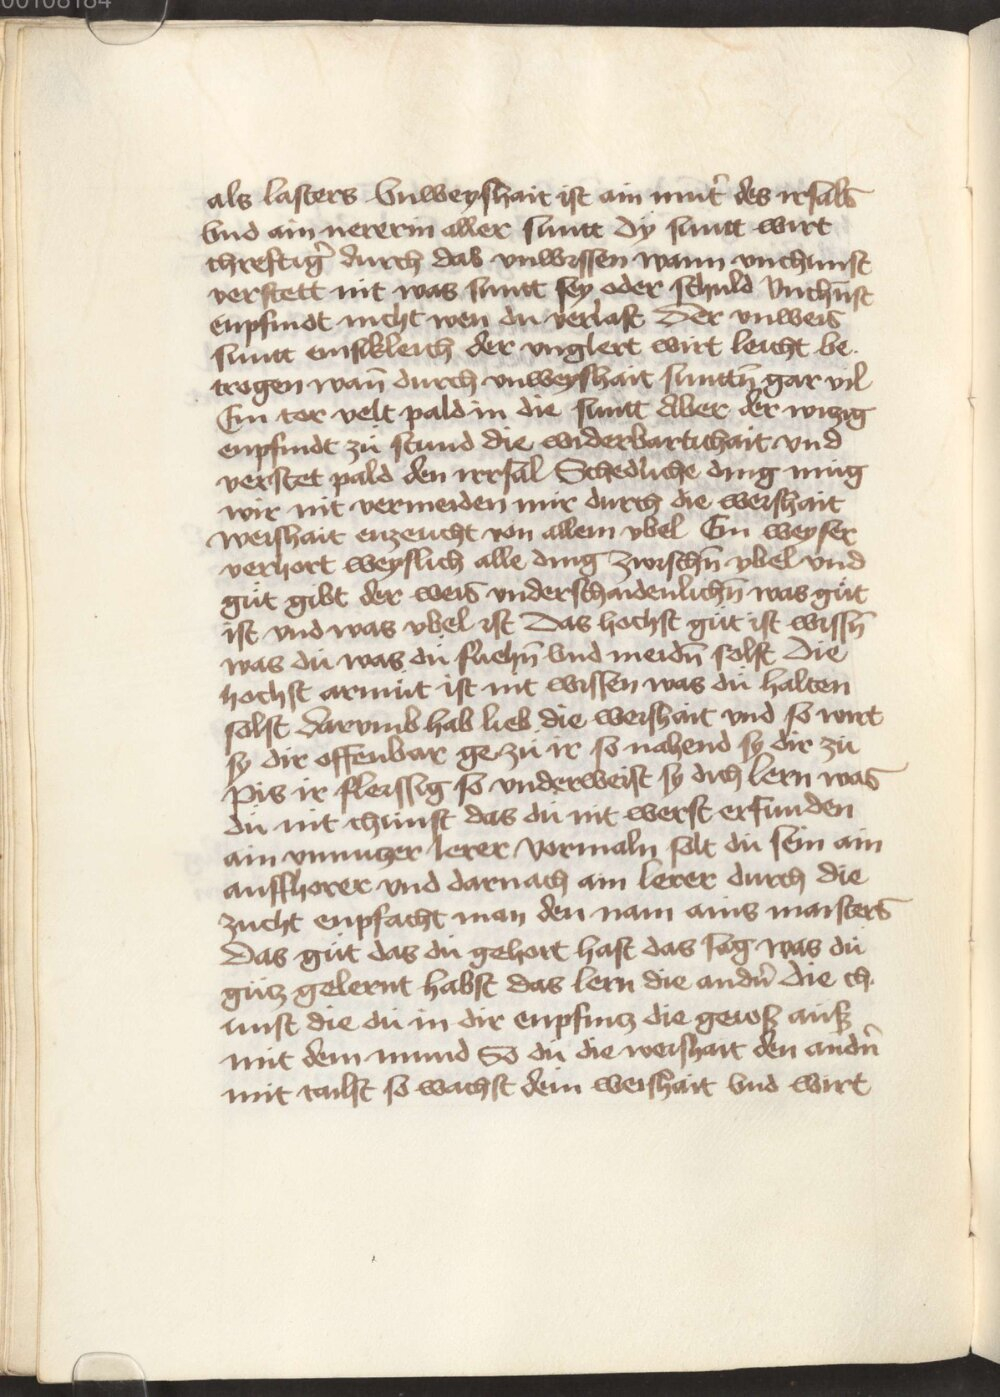 00108184
als lasters Vnweyshait ist ain mut̉ des irsals
Vnd ain nererin aller suntt dy suntt wirt
chreftig̉ durch das vnwissen wann vnchunst
verstett nit was suntt sey oder schuld Vnchūst
enpfindt nicht wen du verlast Der vnweis
suntt emsikleich der vnglert wirt leicht be
trogen wan̄ durch vnweyshait suntt̄n gar vil
Ein tor velt pald in die suntt Aber der witzig
enpfindt zů stund die widerbartichait vnd
verstet pald den irrsal Schedliche ding mug
wir nit vermeiden nur durch die weishait
weishait enzeucht von allem vbel Ein weyser
verhort weyslich alle ding zwisch̄n vbel vnd
gůt gibt der weis vnderschaidenlich̄n was gůt
ist vnd was vbel ist Das hochst gůt ist wiss̄n
was dů was dů flieh̄n Vnd meid̄n solst Die
hochst armůt ist nit wissen was dů halten
solst darumb hab lieb die weishait vnd so wirt
sy dir offenbar ge zů ir so nahend sy dir zů
Pis ir fleissig so vnderweist sy dich lern was
dů nit chunst das dů nit werst erfunden
ain vnnutzer lerer Vormaln solt dů sein ain
auffhorer vnd darnach ain lerer durch die
zucht enpfacht man den nam ains maisters
Das gůt das dů gehort hast das sag was dů
gutz gelernt habst das lern die andn̉ Die ch
unst die dů in dir enpfintz die gewss auss
mit dem mund So dů die weishait den andn̉
mit tailst so wachst dein weishait Vnd wirt